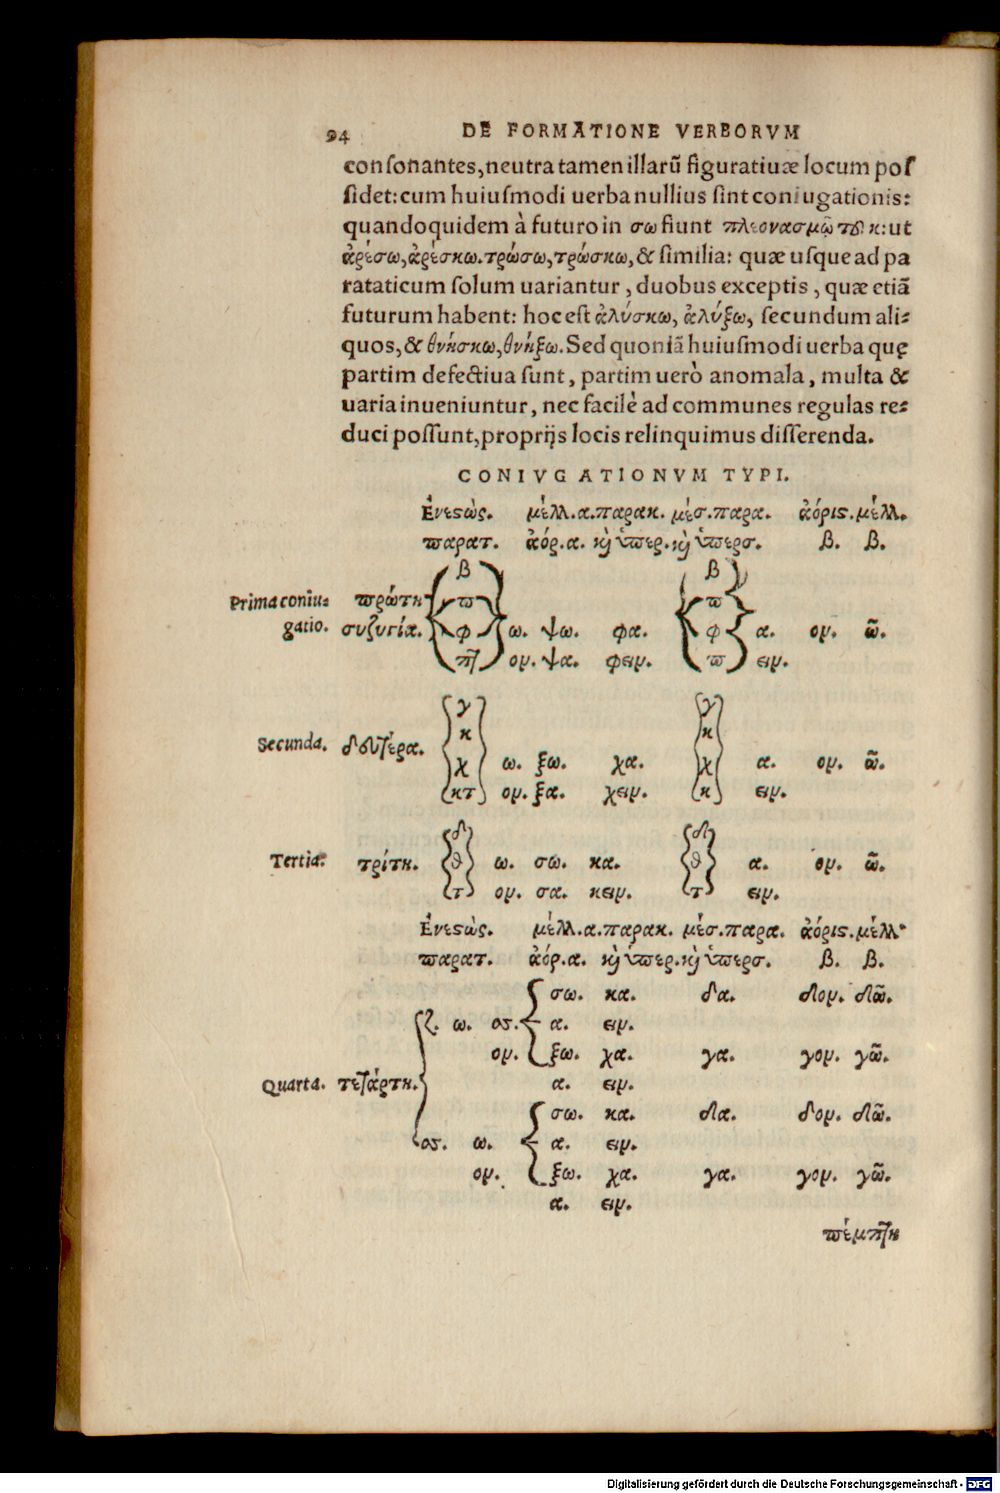 94 DE FORMATIONE VERBORVM
conſonantes,neutra tamen illarũ figuratiuæ locum poſ
ſidet: cum huiuſmodi uerba nullius ſint coniugationis:
quandoquidem à futuro in σω fiunt πλεονασμῷ τȣ͂ κ: ut
ἀρέσω, ἀρέσκω. τρώσω, τρώσκω, & ſimilia: quæ uſque ad pa
rataticum ſolum uariantur, duobus exceptis, quæ etiã
futurum habent: hoc eſt ἀλύσκω, ἀλύξω, ſecundum ali=
quos, & θνήσκω, θνήξω. Sed quoniã huiuſmodi uerba quę
partim defectiua ſunt, partim uerò anomala, multa &
uaria inueniuntur, nec facilè ad communes regulas re=
duci poſſunt, proprijs locis relinquimus diſſerenda.
CONIVGATIONVM TYPI.
Ἐνεϛὼς. μέλλ. α. παρακ. μέσ. παρα. ἀόριϛ. μέλλ.
παρατ. ἀόρ. α. καὶ ὑπερ. καὶ ὑπερσ. β. β.
β β
Prima coniu= πρώτη π π
gatio. συζυγία. φ ω. ψω. φα. φ α. ον. ῶ.
πτ ον. ψα. φειν. π ειν.
γ γ
κ κ
Secunda. δευτέρα. χ ω. ξω. χα. χ α. ον. ῶ.
κτ ον. ξα. χειν. κ ειν.
δ δ
Tertia. τρίτη. θ ω. σω. κα. θ α. ον. ῶ.
τ ον. σα. κειν. τ ειν.
Ἐνεϛὼς. μέλλ. α. παρακ. μέσ. παρα. ἀόριϛ. μέλλ.
παρατ. ἀόρ. α. καὶ ὑπερ. καὶ ὑπερσ. β. β.
σω. κα. δα. δον. δῶ.
ζ. ω. σσ. α. ειν.
ον. ξω. χα. γα. γον. γῶ.
Quarta. τετάρτη. α. ειν.
σω. κα. δα. δον. δῶ.
σσ. ω. α. ειν.
ον. ξω. χα. γα. γον. γῶ.
α. ειν.
πέμπτη
Digitalisierung gefördert durch die Deutsche Forschungsgemeinschaft - DFG